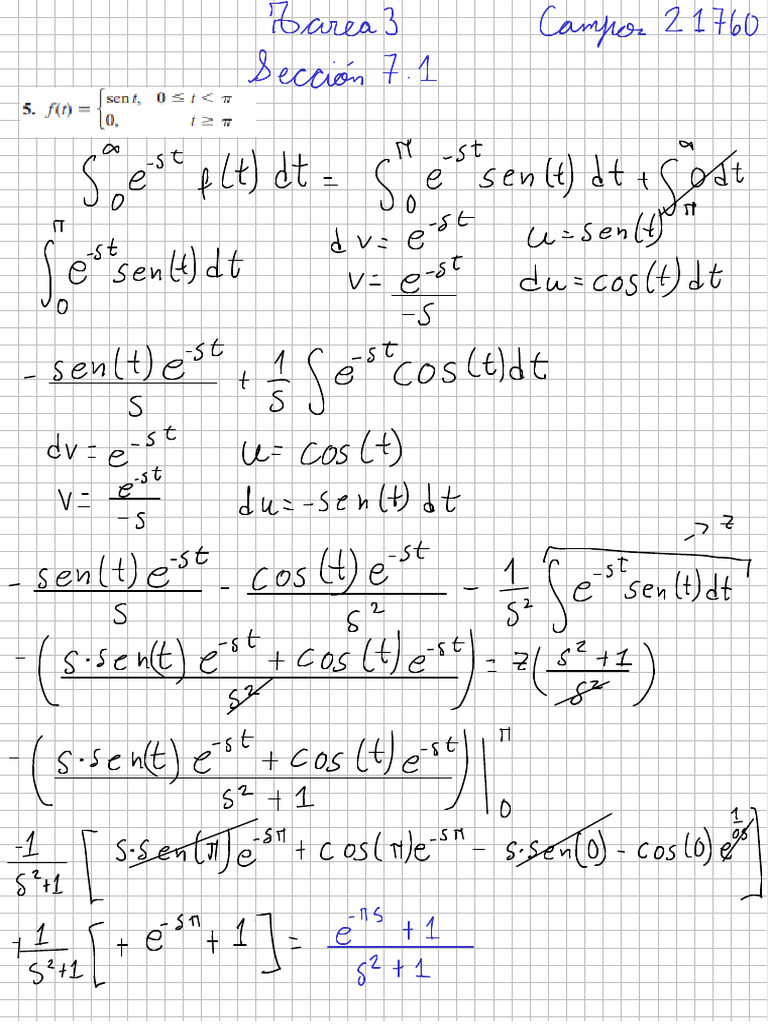 Tarea 3 Campos 21760
Sección 7.1
5. f(t) = { sen t, 0 ≤ t < π
0, t ≥ π
∫₀^∞ e^{-st} f(t) dt = ∫₀^π e^{-st} sen(t) dt + ∫_π^∞ 0 dt
∫₀^π e^{-st} sen(t) dt dv = e^{-st} u = sen(t)
v = e^{-st}/-s du = cos(t) dt
- sen(t) e^{-st}/s + 1/s ∫ e^{-st} cos(t) dt
dv = e^{-st} u = cos(t)
v = e^{-st}/-s du = -sen(t) dt
- sen(t) e^{-st}/s - cos(t) e^{-st}/s² - 1/s² ∫ e^{-st} sen(t) dt → z
- (s·sen(t) e^{-st} + cos(t) e^{-st}/s²) = z (s²+1/s²)
- (s·sen(t) e^{-st} + cos(t) e^{-st}/s²+1) |₀^π
-1/s²+1 [s·sen(π) e^{-sπ} + cos(π) e^{-sπ} - s·sen(0) - cos(0) e^{0s} 1]
+1/s²+1 [+ e^{-sπ} + 1] = e^{-πs} + 1/s² + 1